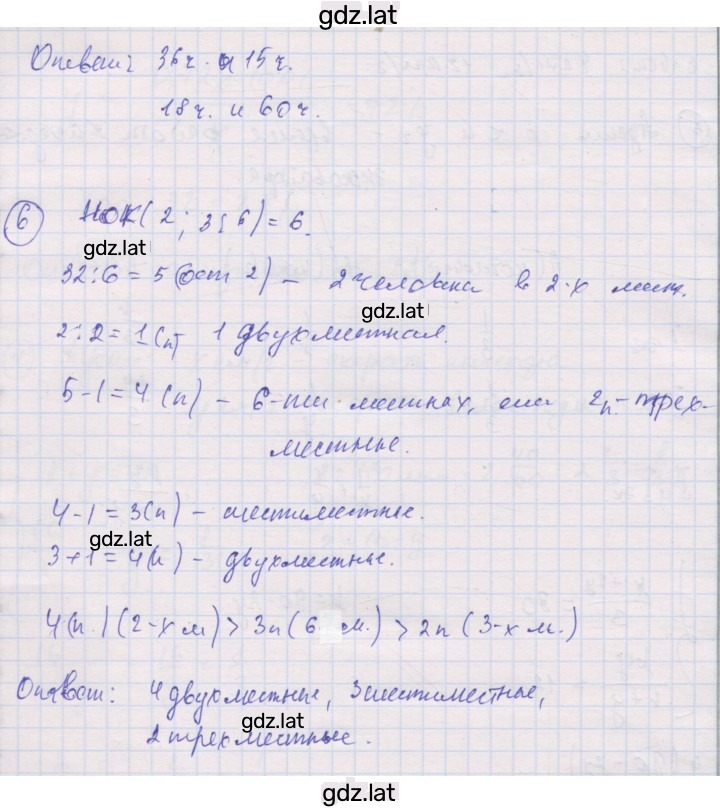 gdz.lat
Ответ: 36ч. и 15ч.
18ч. и 60ч.
6 НОК(2; 3; 6) = 6.
gdz.lat
32:6 = 5 (ост 2) – 2 человека в 2-х мест.
gdz.lat
2:2 = 1 (п) 1 двухместная.
5-1 = 4 (п) – 6-ти местных, или 2п. - трех-
местные.
4-1 = 3(п) – шестиместные.
gdz.lat
3+1 = 4(п) – двухместные.
4(п.) (2-х м) > 3п (6 м.) > 2п (3-х м.)
Ответ: 4 двухместные, 3 шестиместные,
gdz.lat
2 трехместные.
gdz.lat